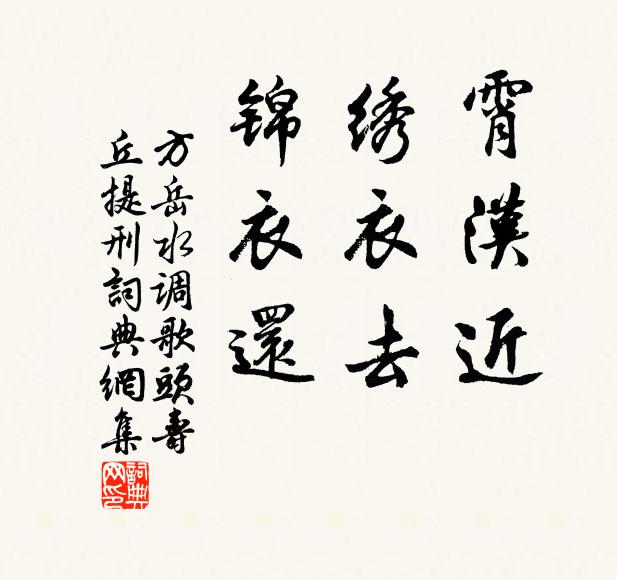 霄漢近
绣衣去
锦衣還
方岳水调歌頭壽
丘提刑詞典網集
詞典网印